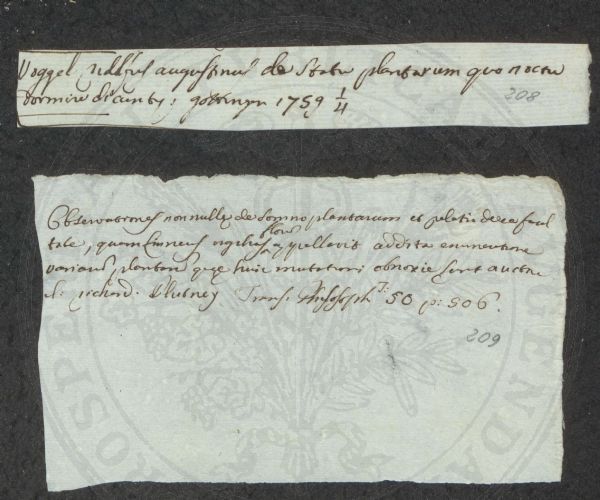 Voggel augustinus de Statu plantarum quo noctu
dormire dicuntur; gottingn 1759 1/4
208
Observationes nonnullæ de somno plantarum et de ea facul
tate, quam Linneus vigilias florum appellavit addita enumeratione
plantarum quæ huic mutationi obnoxiæ sunt auctore
d: richard: Pultney Trans: Philosoph T: 50 p: 506.
209
PROSPE